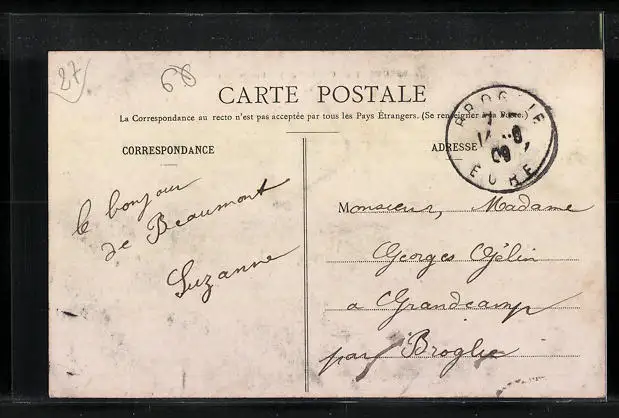 27
60
CARTE POSTALE
La Correspondance au recto n'est pas acceptée par tous les Pays Étrangers. (Se renseigner à la Poste.)
CORRESPONDANCE
ADRESSE
BROGLIE
09
EURE
le bonjour
de Beaumont
Suzanne
Monsieur, Madame
Georges Gélin
a Grandcamp
par Broglie